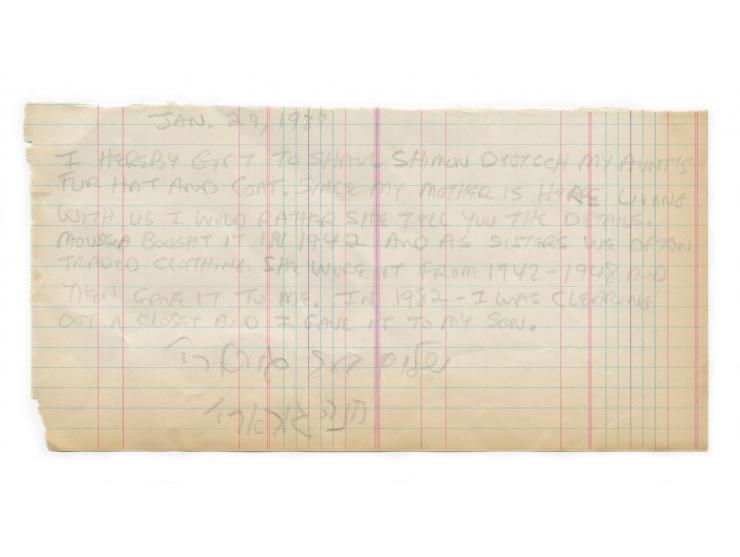 JAN. 29, 1989
I HEREBY GIFT TO SHAUL SHIMON DEUTSCH MY AUNT'S
FUR HAT AND COAT. SINCE MY MOTHER IS HERE LIVING
WITH US I WOULD RATHER SHE TELL YOU THE DETAILS.
MOUSSIA BOUGHT IT IN 1942 AND AS SISTERS WE OFTON
TRADED CLOTHING. SHE WORE IT FROM 1942-1948 AND
THEN GAVE IT TO ME. IN 1982 - I WAS CLEARING
OUT A CLOSET AND I GAVE IT TO MY SON.
שלום דובער